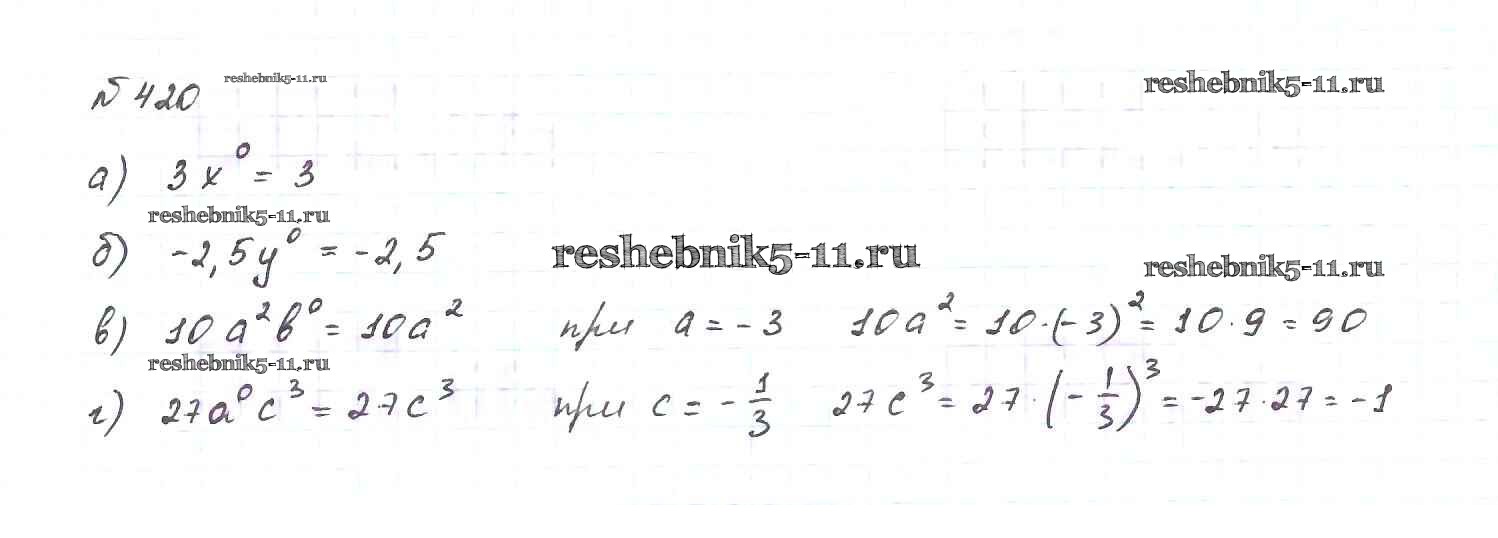 № 420 reshebnik5-11.ru reshebnik5-11.ru
а) 3x⁰ = 3
reshebnik5-11.ru
б) -2,5y⁰ = -2,5 reshebnik5-11.ru reshebnik5-11.ru
в) 10a²b⁰ = 10a² при a = -3 10a² = 10·(-3)² = 10·9 = 90
reshebnik5-11.ru
г) 27a⁰c³ = 27c³ при c = -1/3 27c³ = 27·(-1/3)³ = -27·27 = -1